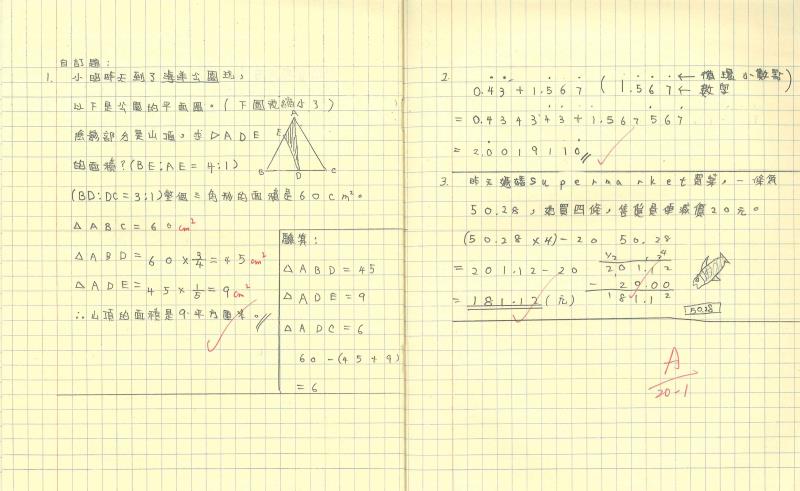 自訂題:
1. 小明昨天到了海洋公園玩，
以下是公園的平面圖。(下圖被縮小了)
陰影部分是山頂，求△ADE
的面積?(BE:AE=4:1)
(BD:DC=3:1)整個三角形的面積是60cm²。
A
E
B D C
△ABC=60cm²
△ABD=60×3/4=45cm²
△ADE=45×1/5=9cm²
∴山頂的面積是9平方厘米。
驗算:
△ABD=45
△ADE=9
△ADC=6
60-(45+9)
=6
2. 0.43+1.567 (1.567 ←循環小數點
←數字)
=0.434343+1.567567
=2.0019110
3. 昨天媽媽Supermarket買菜，一條魚
50.28，她買四條，售貨員便減價20元。
(50.28×4)-20
=201.12-20
=181.12(元)
50.28
201.12
- 20.00
181.12
50.28
A
20-1